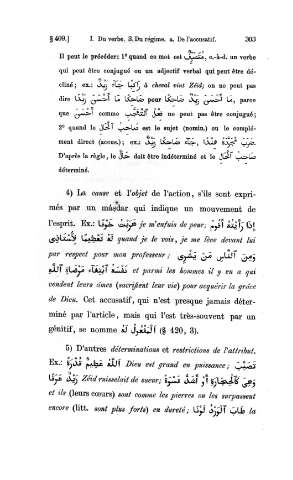 § 409.] I. Du verbe. 3. Du régime. a. De l'accusatif. 303
Il peut le précéder: 1° quand en mot est مُتَصَرِّفٌ, c.-à-d. un verbe
qui peut être conjugué ou un adjectif verbal qui peut être dé-
cliné; ex.: رَاكِبًا جَاءَ زَيْدٌ à cheval vint Zéid; on ne peut pas
dire ضَاحِكًا مَا أَحْسَنَ زَيْدًا pour مَا أَحْسَنَ زَيْدًا ضَاحِكًا, parce
que أَحْسَنَ comme فِعْلُ التَّعَجُّبِ ne peut pas être conjugué;
2° quand le صَاحِبُ الْحَالِ est le sujet (nomin.) ou le complé-
ment direct (accus.); ex.:
D'après la règle, le حَال doit être indéterminé et le صَاحِبُ الْحَالِ
déterminé.
4) La cause et l'objet de l'action, s'ils sont expri-
més par un maṣdar qui indique un mouvement de
l'esprit. Ex.: هَرَبْتُ خَوْفًا je m'enfuis de peur; إِذَا رَأَيْتُهُ أَقُومُ
لَهُ تَعْظِيمًا لِأُسْتَاذِي quand je le vois, je me lève devant lui
par respect pour mon professeur; وَمِنَ النَّاسِ مَنْ يَشْرِي
نَفْسَهُ ابْتِغَاءَ مَرْضَاةِ اللّٰهِ et parmi les hommes il y en a qui
vendent leurs âmes (sacrifient leur vie) pour acquérir la grâce
de Dieu. Cet accusatif, qui n'est presque jamais déter-
miné par l'article, mais qui l'est très-souvent par un
génitif, se nomme الْمَفْعُولُ لَهُ (§ 420, 3).
5) D'autres déterminations et restrictions de l'attribut.
Ex.: اللّٰهُ عَظِيمٌ قُدْرَةً Dieu est grand en puissance; تَصَبَّبَ
زَيْدٌ عَرَقًا Zéid ruisselait de sueur; وَهِيَ كَالْحِجَارَةِ أَوْ أَشَدُّ قَسْوَةً
et ils (leurs cœurs) sont comme les pierres ou les surpassent
encore (litt. sont plus forts) en dureté; طَابَ الْوَرْدُ لَوْنًا la